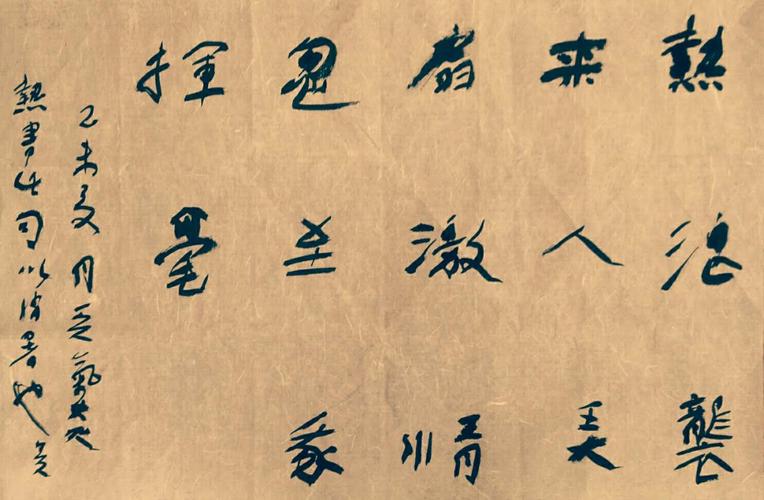 熱浪襲
来人
扇激情
至我
揮毫
乙未夏月天氣炎
熱書此句以消暑也